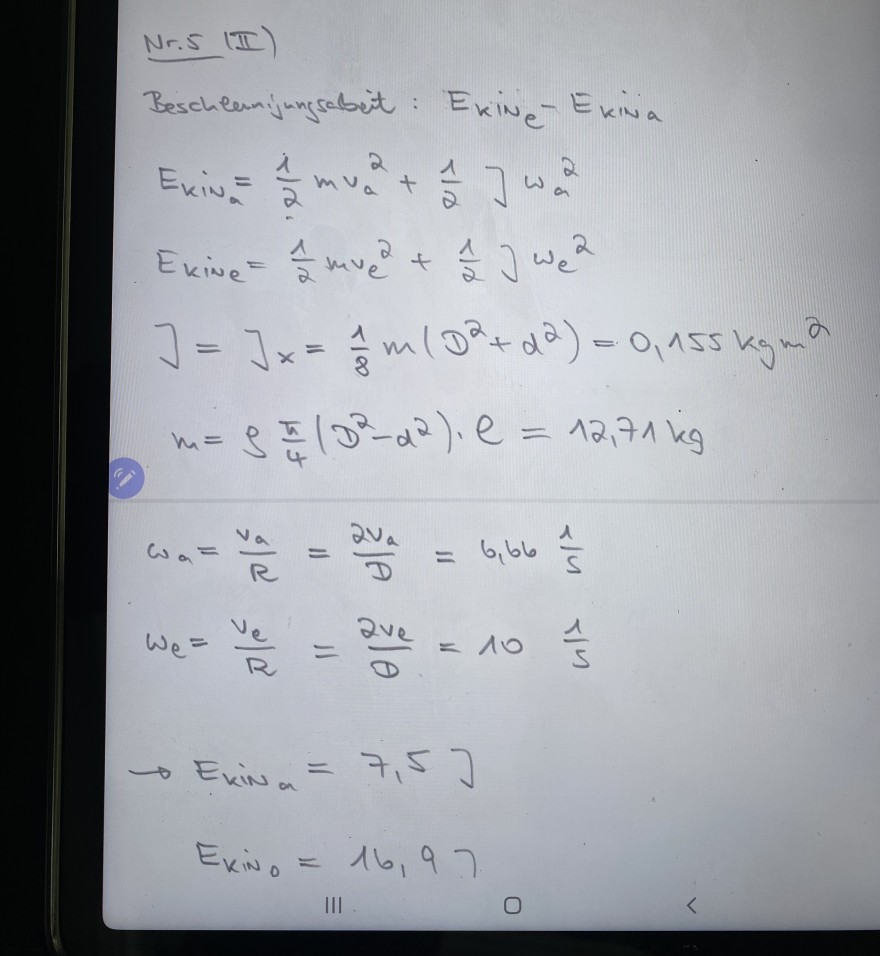 Nr. 5 (II)
Beschleunigungsarbeit : E_KIN_e - E_KIN_a
E_KIN_a = 1/2 m v_a² + 1/2 J ω_a²
E_KIN_e = 1/2 m v_e² + 1/2 J ω_e²
J = J_x = 1/8 m (D² + d²) = 0,155 kgm²
m = ρ π/4 (D² - d²) · l = 12,71 kg
ω_a = v_a/R = 2v_a/D = 6,66 1/s
ω_e = v_e/R = 2v_e/D = 10 1/s
→ E_KIN_a = 7,5 J
E_KIN_0 = 16,9 J